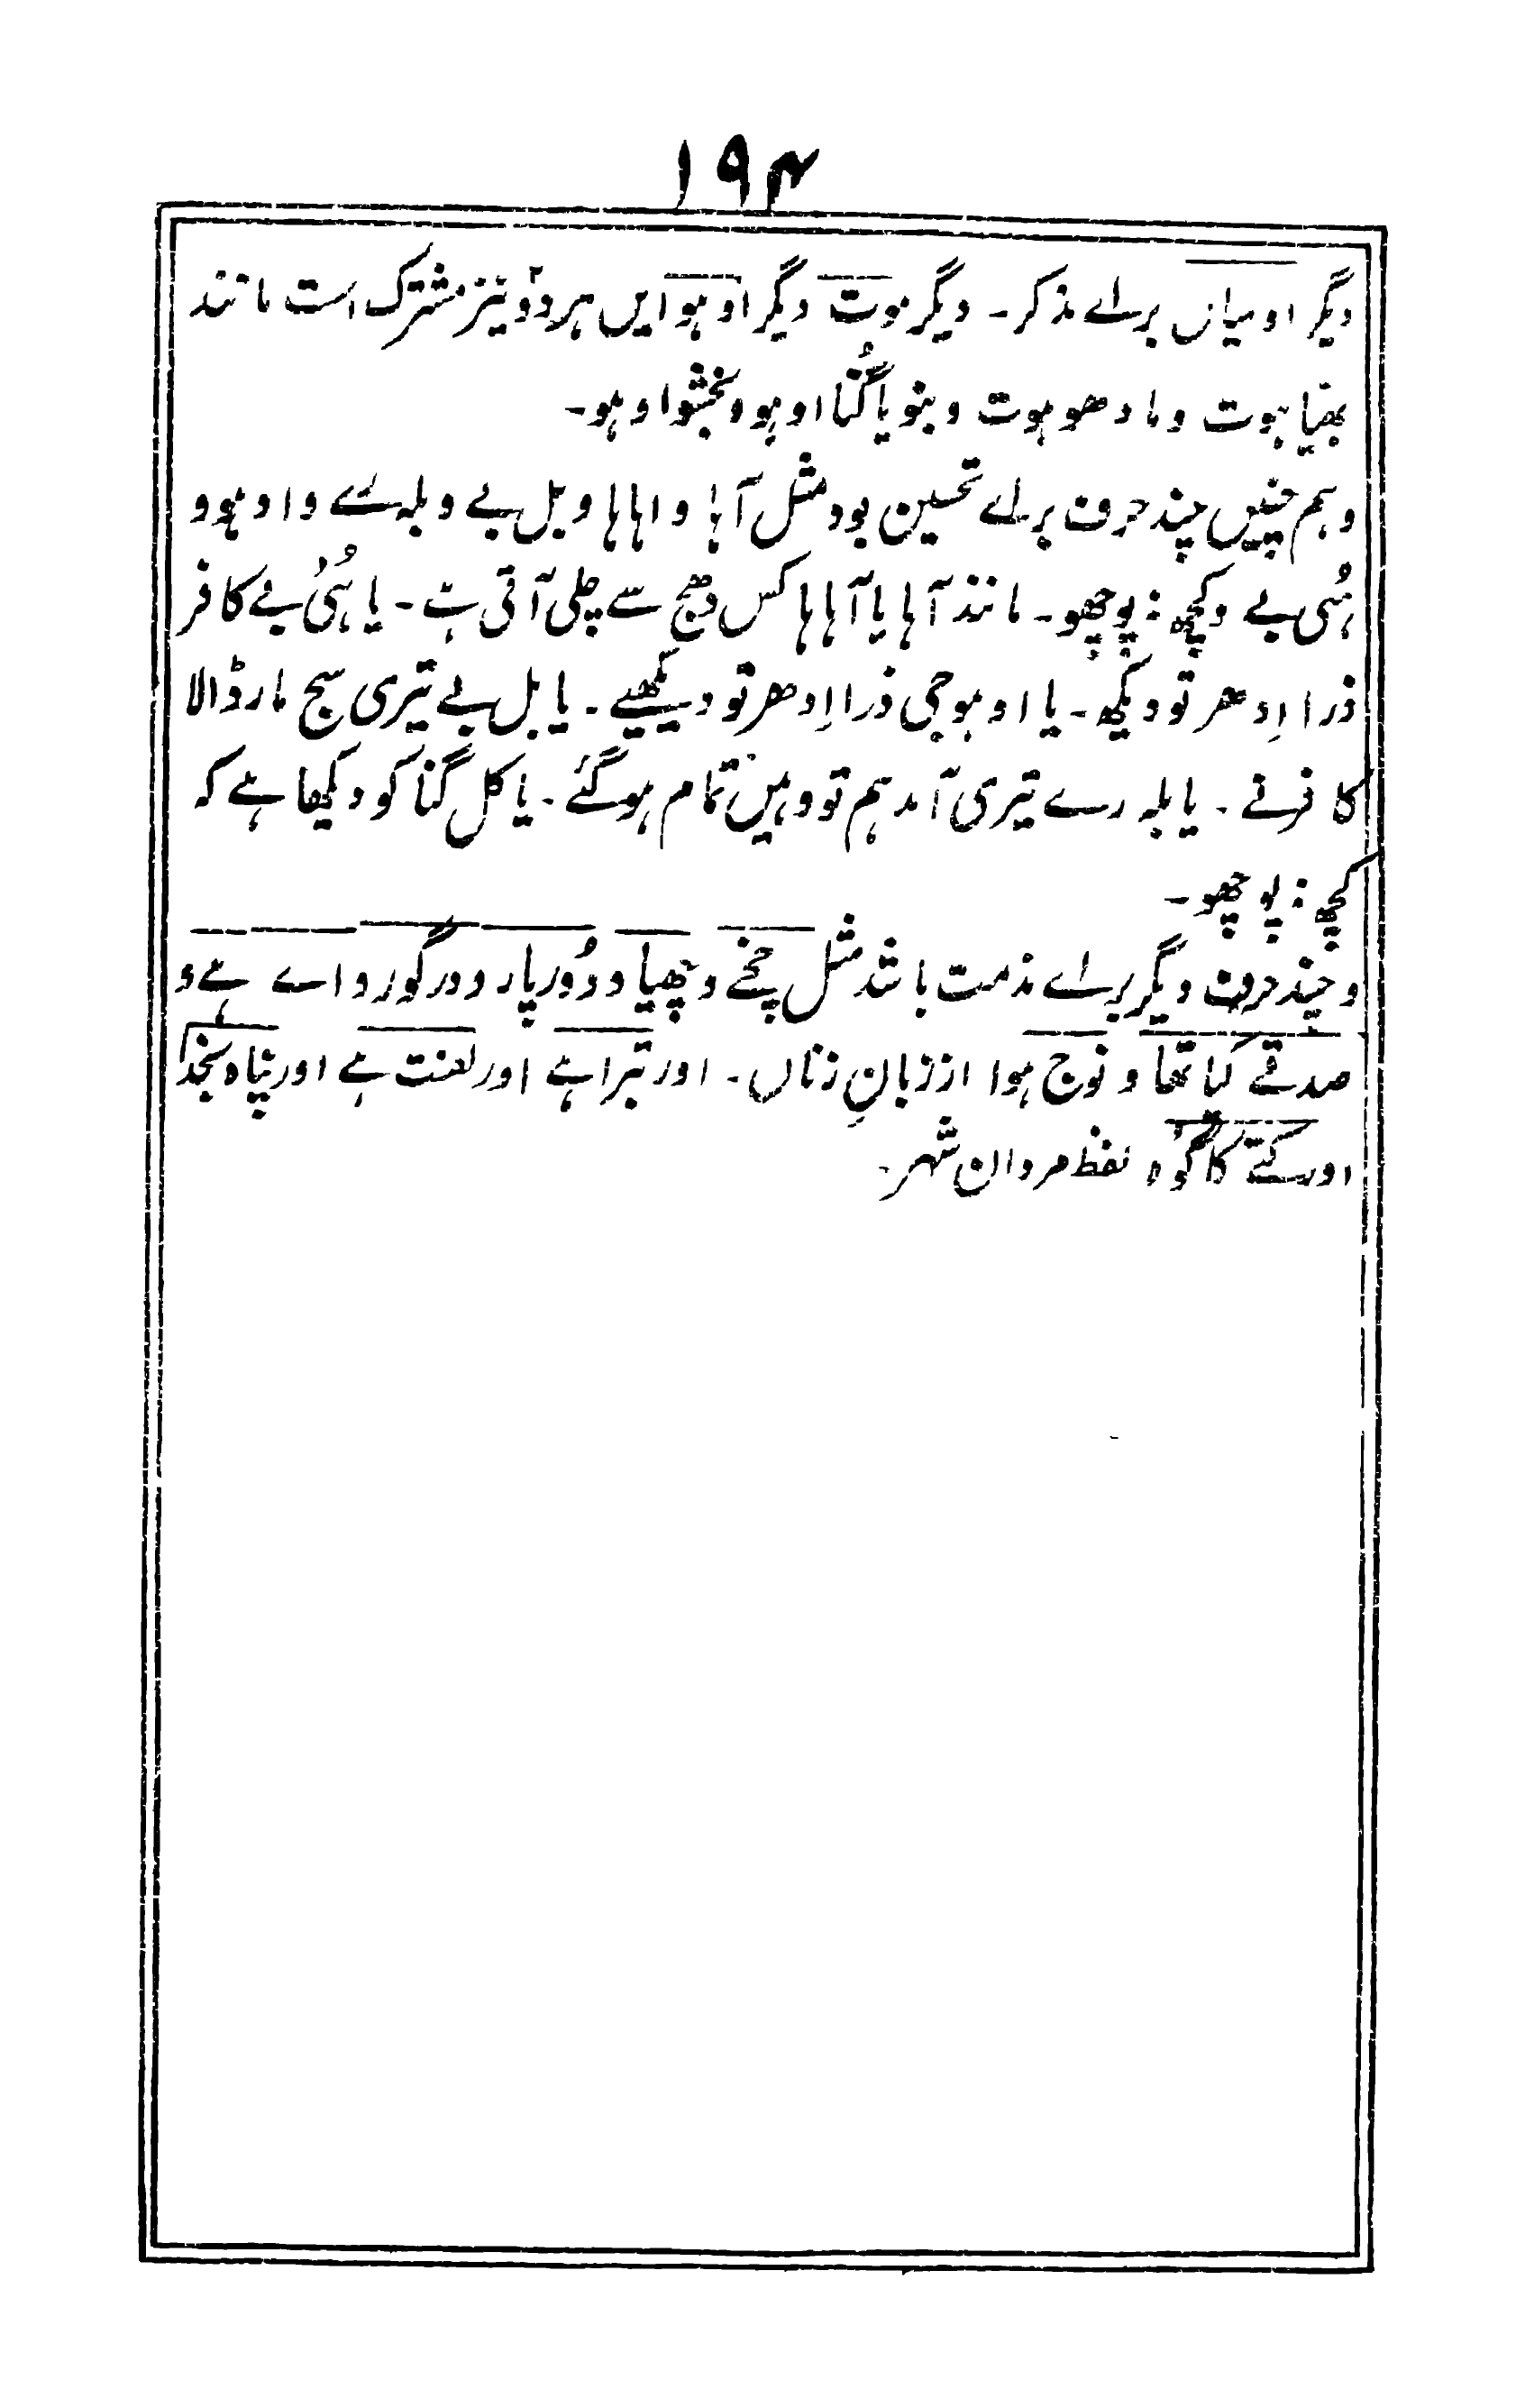 ۱۹۴
دیگر او میاں براے مذکر۔ دیگر ہوت دیگر او ہو ایں ہر دو نیز مشترک است مانند
بھیّا ہوت و مادھو ہوت و بنو یا گُنّا او ہو و بخشو او ہو۔
و ہم چنیں چند حرف براے تحسین بود مثل آہا و اہاہا و بل بے و بلہ رے و او ہو و
ہُئی بے و کچھ نہ پوچھو۔ مانند آہا یا آہاہا کس دھج سے چلی آتی ہے۔ یا ہُئی بے کافر
ذرا اِدھر تو دیکھ۔ یا او ہو جی ذرا اِدھر تو دیکھیے۔ یا بل بے تیری سج مار ڈالا
کافر نے۔ یا بلہ رے تیری آمد ہم تو وہیں تمام ہو گئے۔ یا کل گنا کو دیکھا ہے کہ
کچھ نہ پوچھو۔
و چند حرف دیگر براے مذمت باشد مثل چخے و چھیا و دُور پار و در گور و اے ہے و
صدقے کیا تھا و نوج ہوا از زبانِ زناں۔ اور تبرا ہے اور لعنت ہے اور پناہ بخدا
اور کتے کا گوہ لفظ مردان شہر۔